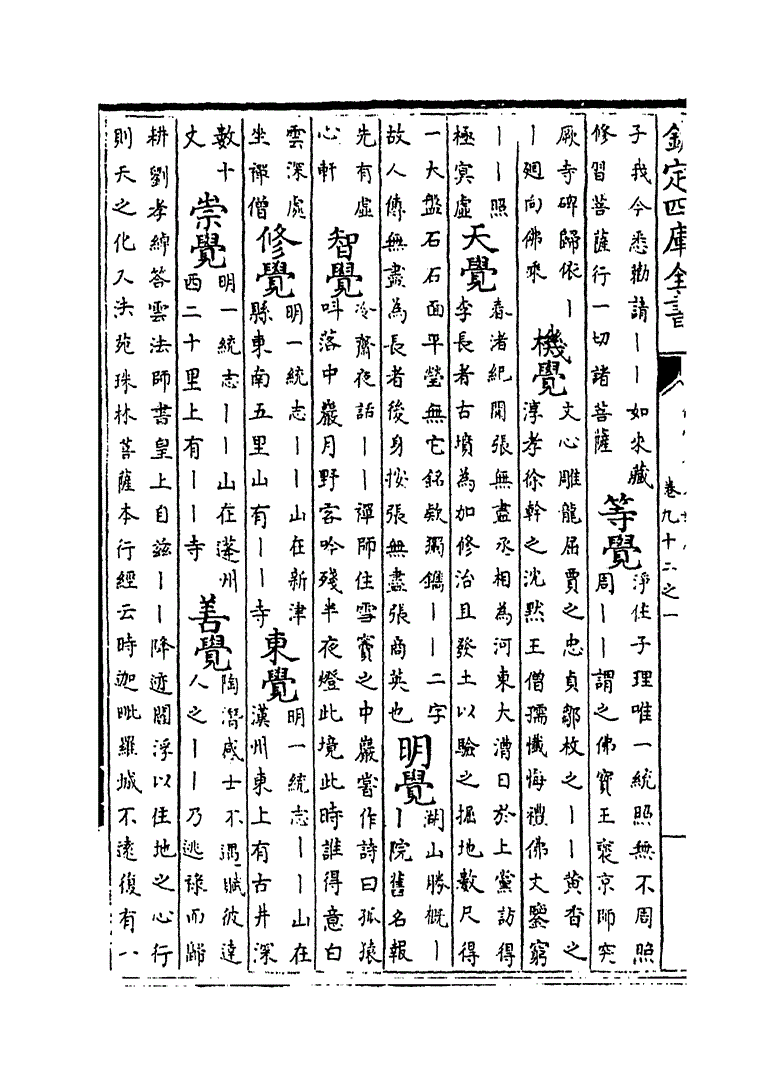 欽定四庫全書
卷九十二之一
子我今悉勸請丨丨如來藏
修習菩薩行一切諸菩薩
等覺
淨住子理唯一統照無不周照
周丨丨謂之佛寶王褒京師突
厥寺碑歸依丨
丨廻向佛乘
機覺
文心雕龍屈賈之忠貞鄒枚之丨丨黃香之
淳孝徐幹之沈默王僧孺懺悔禮佛文鑒窮
丨丨照
極冥虛
天覺
春渚紀聞張無盡丞相為河東大漕日於上黨訪得
李長者古墳為加修治且發土以驗之掘地數尺得
一大盤石石面平瑩無它銘欵獨鐫丨丨二字
故人傳無盡為長者後身按張無盡張商英也
明覺
湖山勝概丨
丨院舊名報
先有虛
心軒
智覺
冷齋夜話丨丨禪師住雪竇之中巖嘗作詩曰孤猿
叫落中巖月野客吟殘半夜燈此境此時誰得意白
雲深處
坐禪僧
修覺
明一統志丨丨山在新津
縣東南五里山有丨丨寺
東覺
明一統志丨丨山在
漢州東上有古井深
數十
丈
崇覺
明一統志丨丨山在蓬州
西二十里上有丨丨寺
善覺
陶潛感士不遇賦彼達
人之丨丨乃逃祿而歸
耕劉孝綽答雲法師書皇上自兹丨丨降迹閻浮以住地之心行
則天之化又法苑珠林菩薩本行經云時迦毗羅城不遠復有八